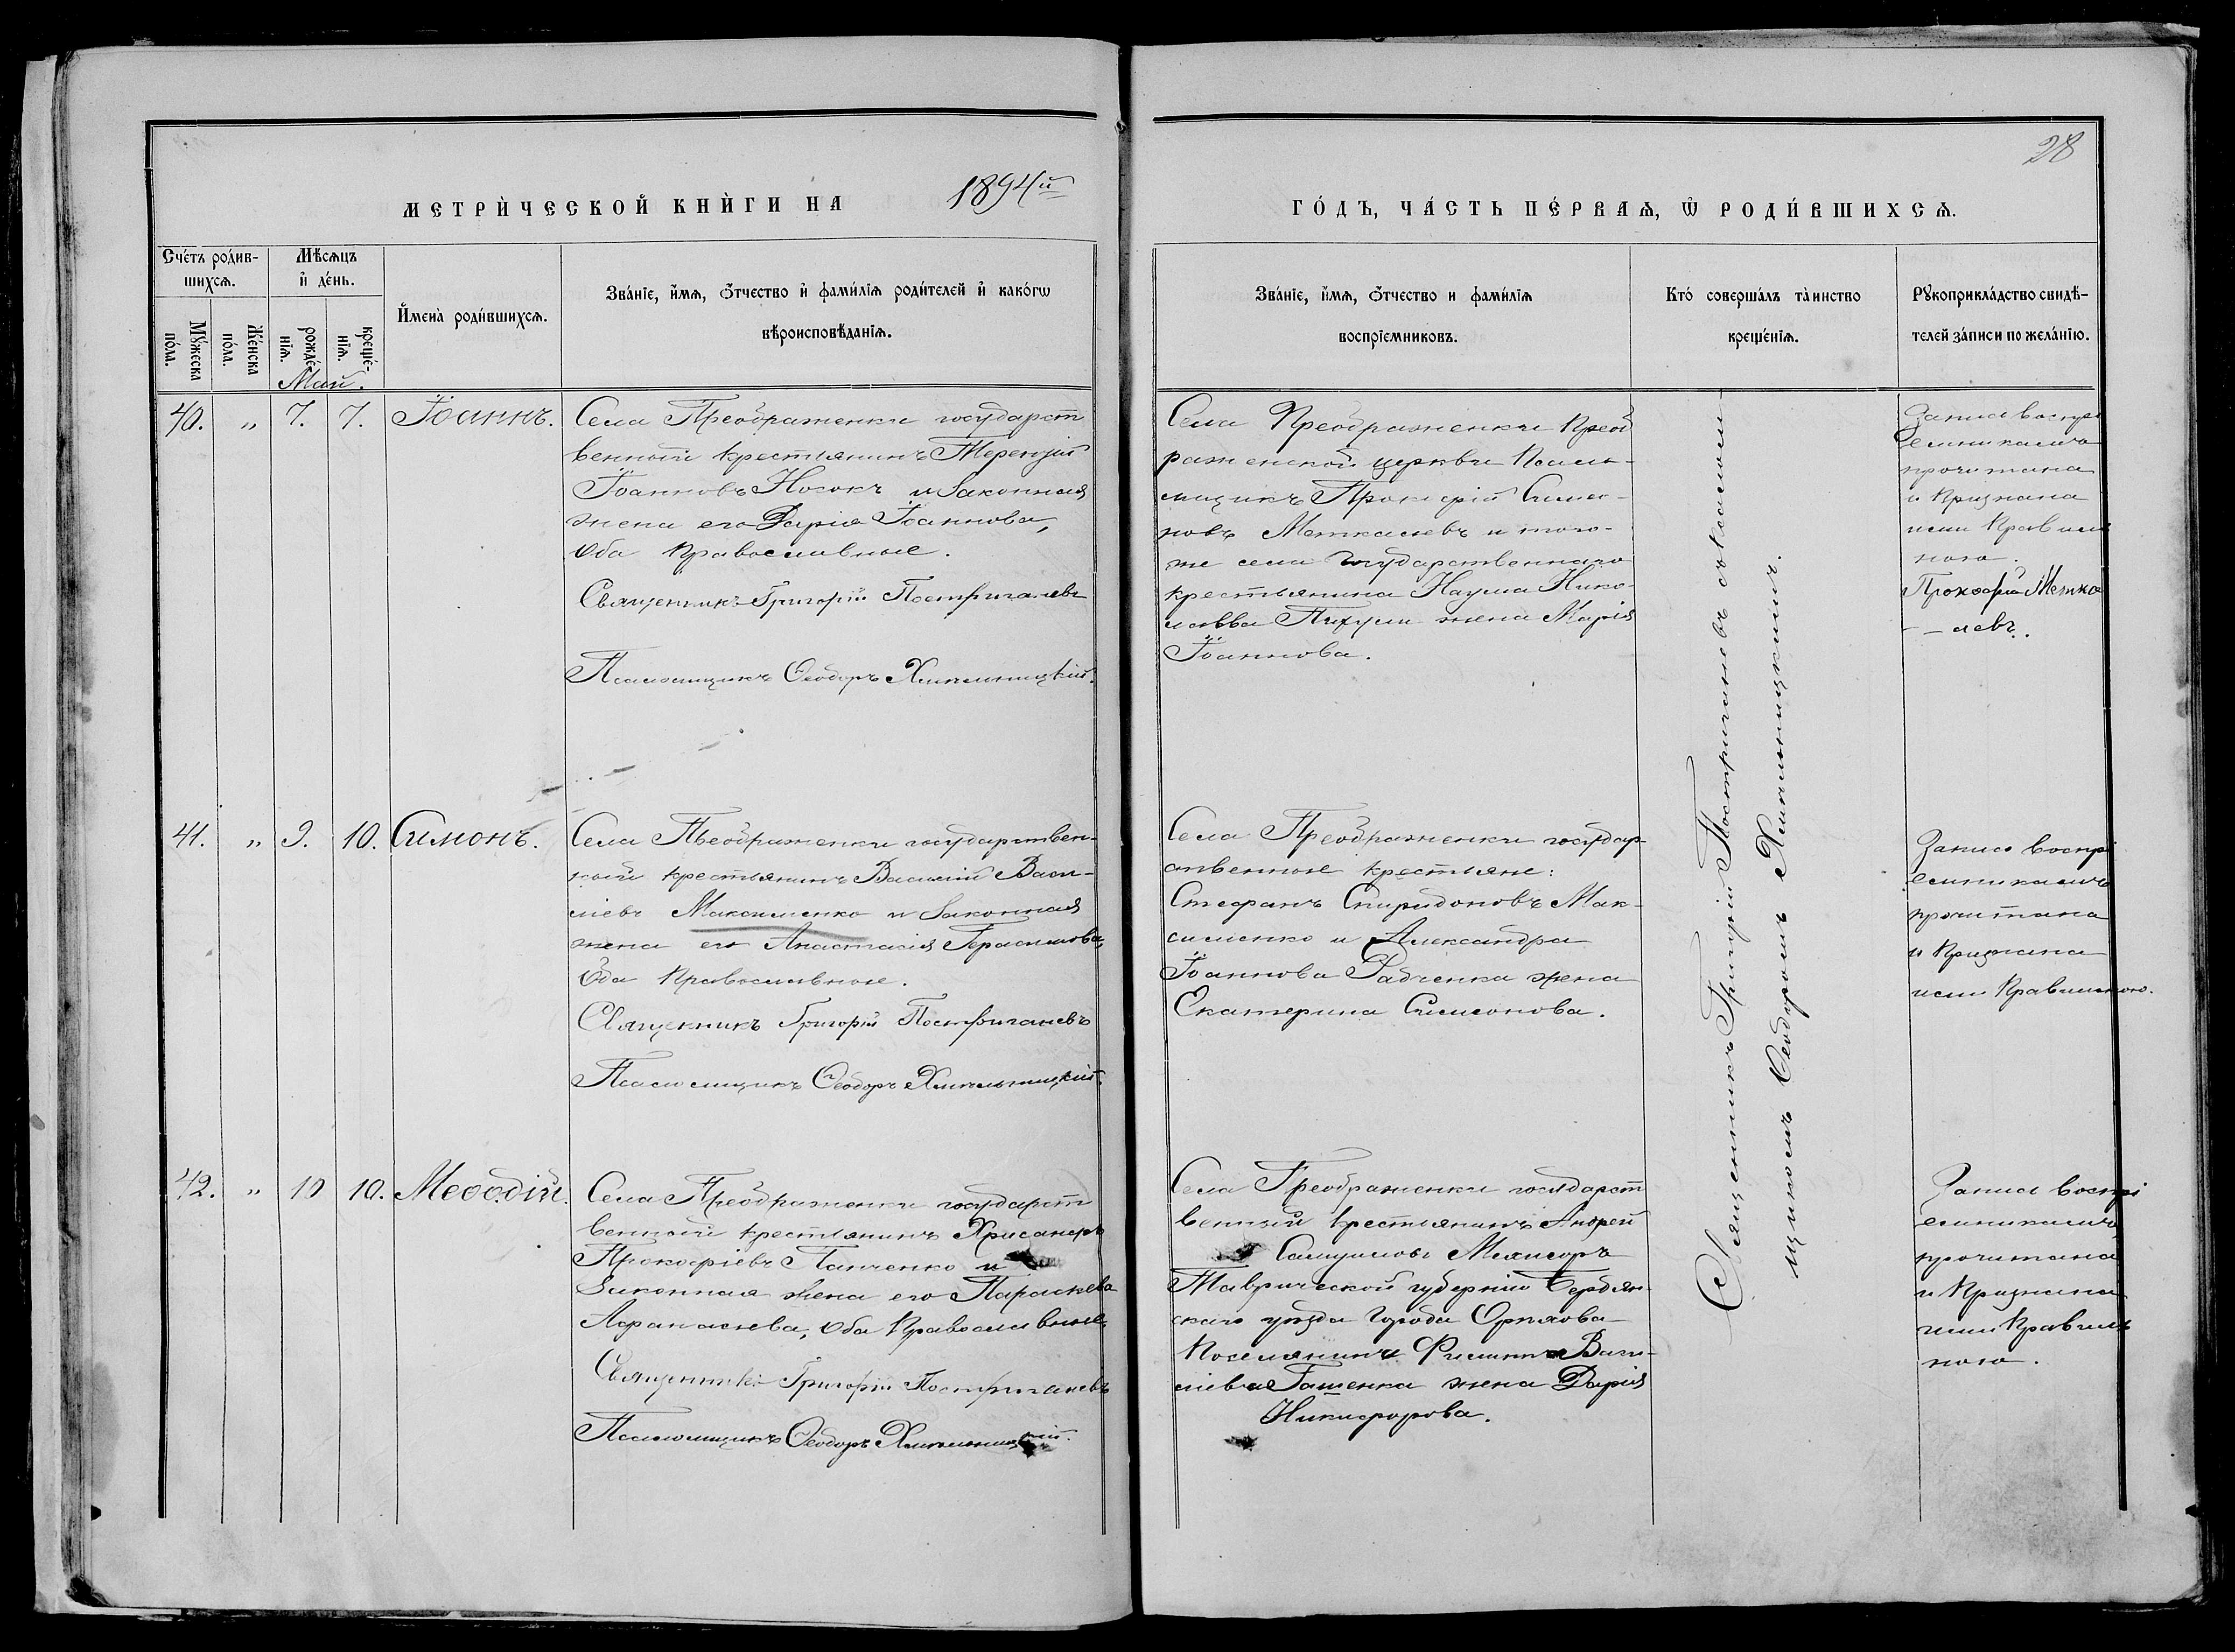 28
МЕТРИ́ЧЕСКОЙ КНИ́ГИ НА 1894й
ГО́ДЪ, ЧА́СТЬ ПЕ́РВАѦ, Ѽ РОДИ́ВШИХСѦ.
Сче́тъ роди́в-
шихсѧ.
Мꙋ́жеска
по́ла.
Же́нска
по́ла.
Мѣсѧцъ
и҆ де́нь.
рожде́-
нїѧ.
креще́-
нїѧ.
Май.
И҆мена̀ роди́вшихсѧ.
Зва́нїе, и҆́мѧ, ѻ҆́тчество и҆ фами́лїѧ роди́телей и҆ како́гѡ
вѣроисповѣ́данїѧ.
Зва́нїе, и҆́мѧ, ѻ҆́тчество и фами́лїѧ
воспрїе́мниковъ.
Кто́ соверша́лъ та̀инство
креще́нїѧ.
Рꙋкоприкла́дство свидѣ́-
телей за́писи по жела́нїю.
40. „ 7. 7. Іоаннъ.
Села Преображенки государст
венный крестьянинъ Терентій
Іоанновъ Носокъ и законная
жена его Дарія Іоаннова,
оба православные.
Священникъ Григорій Постригачевъ
Псаломщикъ Ѳеодоръ Хмельницкій.
Села Преображенки Преоб
раженской церкви Псало-
мщикъ Прокофій Симео-
новъ Меткалевъ и того-
же села государственнаго
крестьянина Наума Нико-
лаева жена Марія
Іоаннова.
Запись воспрі
емниками
прочитана
и признана
ими правиль
ною.
Прокофій Метка
- - левъ.
41. „ 9. 10. Симонъ.
Села Пеображенки государствен-
ный крестьянинъ Василій Васи-
ліевъ Максименко и законная
жена его Анастасія Герасимова,
оба православные.
Священникъ Григорій Постригачевъ
Псаломщикъ Ѳеодоръ Хмельницкій.
Села Преображенки государ-
ственные крестьяне:
Стефанъ Спиридоновъ Мак-
сименко и Александра
Іоаннова Рабченка жена
Екатерина Симеонова.
Запись воспрі
емниками
прочитана
и признана
ими правильною.
42. „ 10 10. Меѳодій.
Села Преображенки государст
венный крестьянинъ Хрисанфъ
Прокофіевъ Панченко и
законная жена его Параскева
Афанасьева, оба православные.
Священникъ Григорій Постригачевъ
Псаломщикъ Ѳеодоръ Хмельницкій.
Села Преображенки государст
венный крестьянинъ Андрей
Самуиловъ
Таврической губерніи Бердян-
скаго уѣзда города Орѣхова
поселянина Филиппа Васи-
ліева Гашенка жена Дарія
Никифорова.
Запись воспрі
емниками
прочитана
и признана
ими правиль
ною.
Священникъ Григорій Постригачевъ съ псалом
щикомъ Ѳеодоромъ Хмельницкимъ.